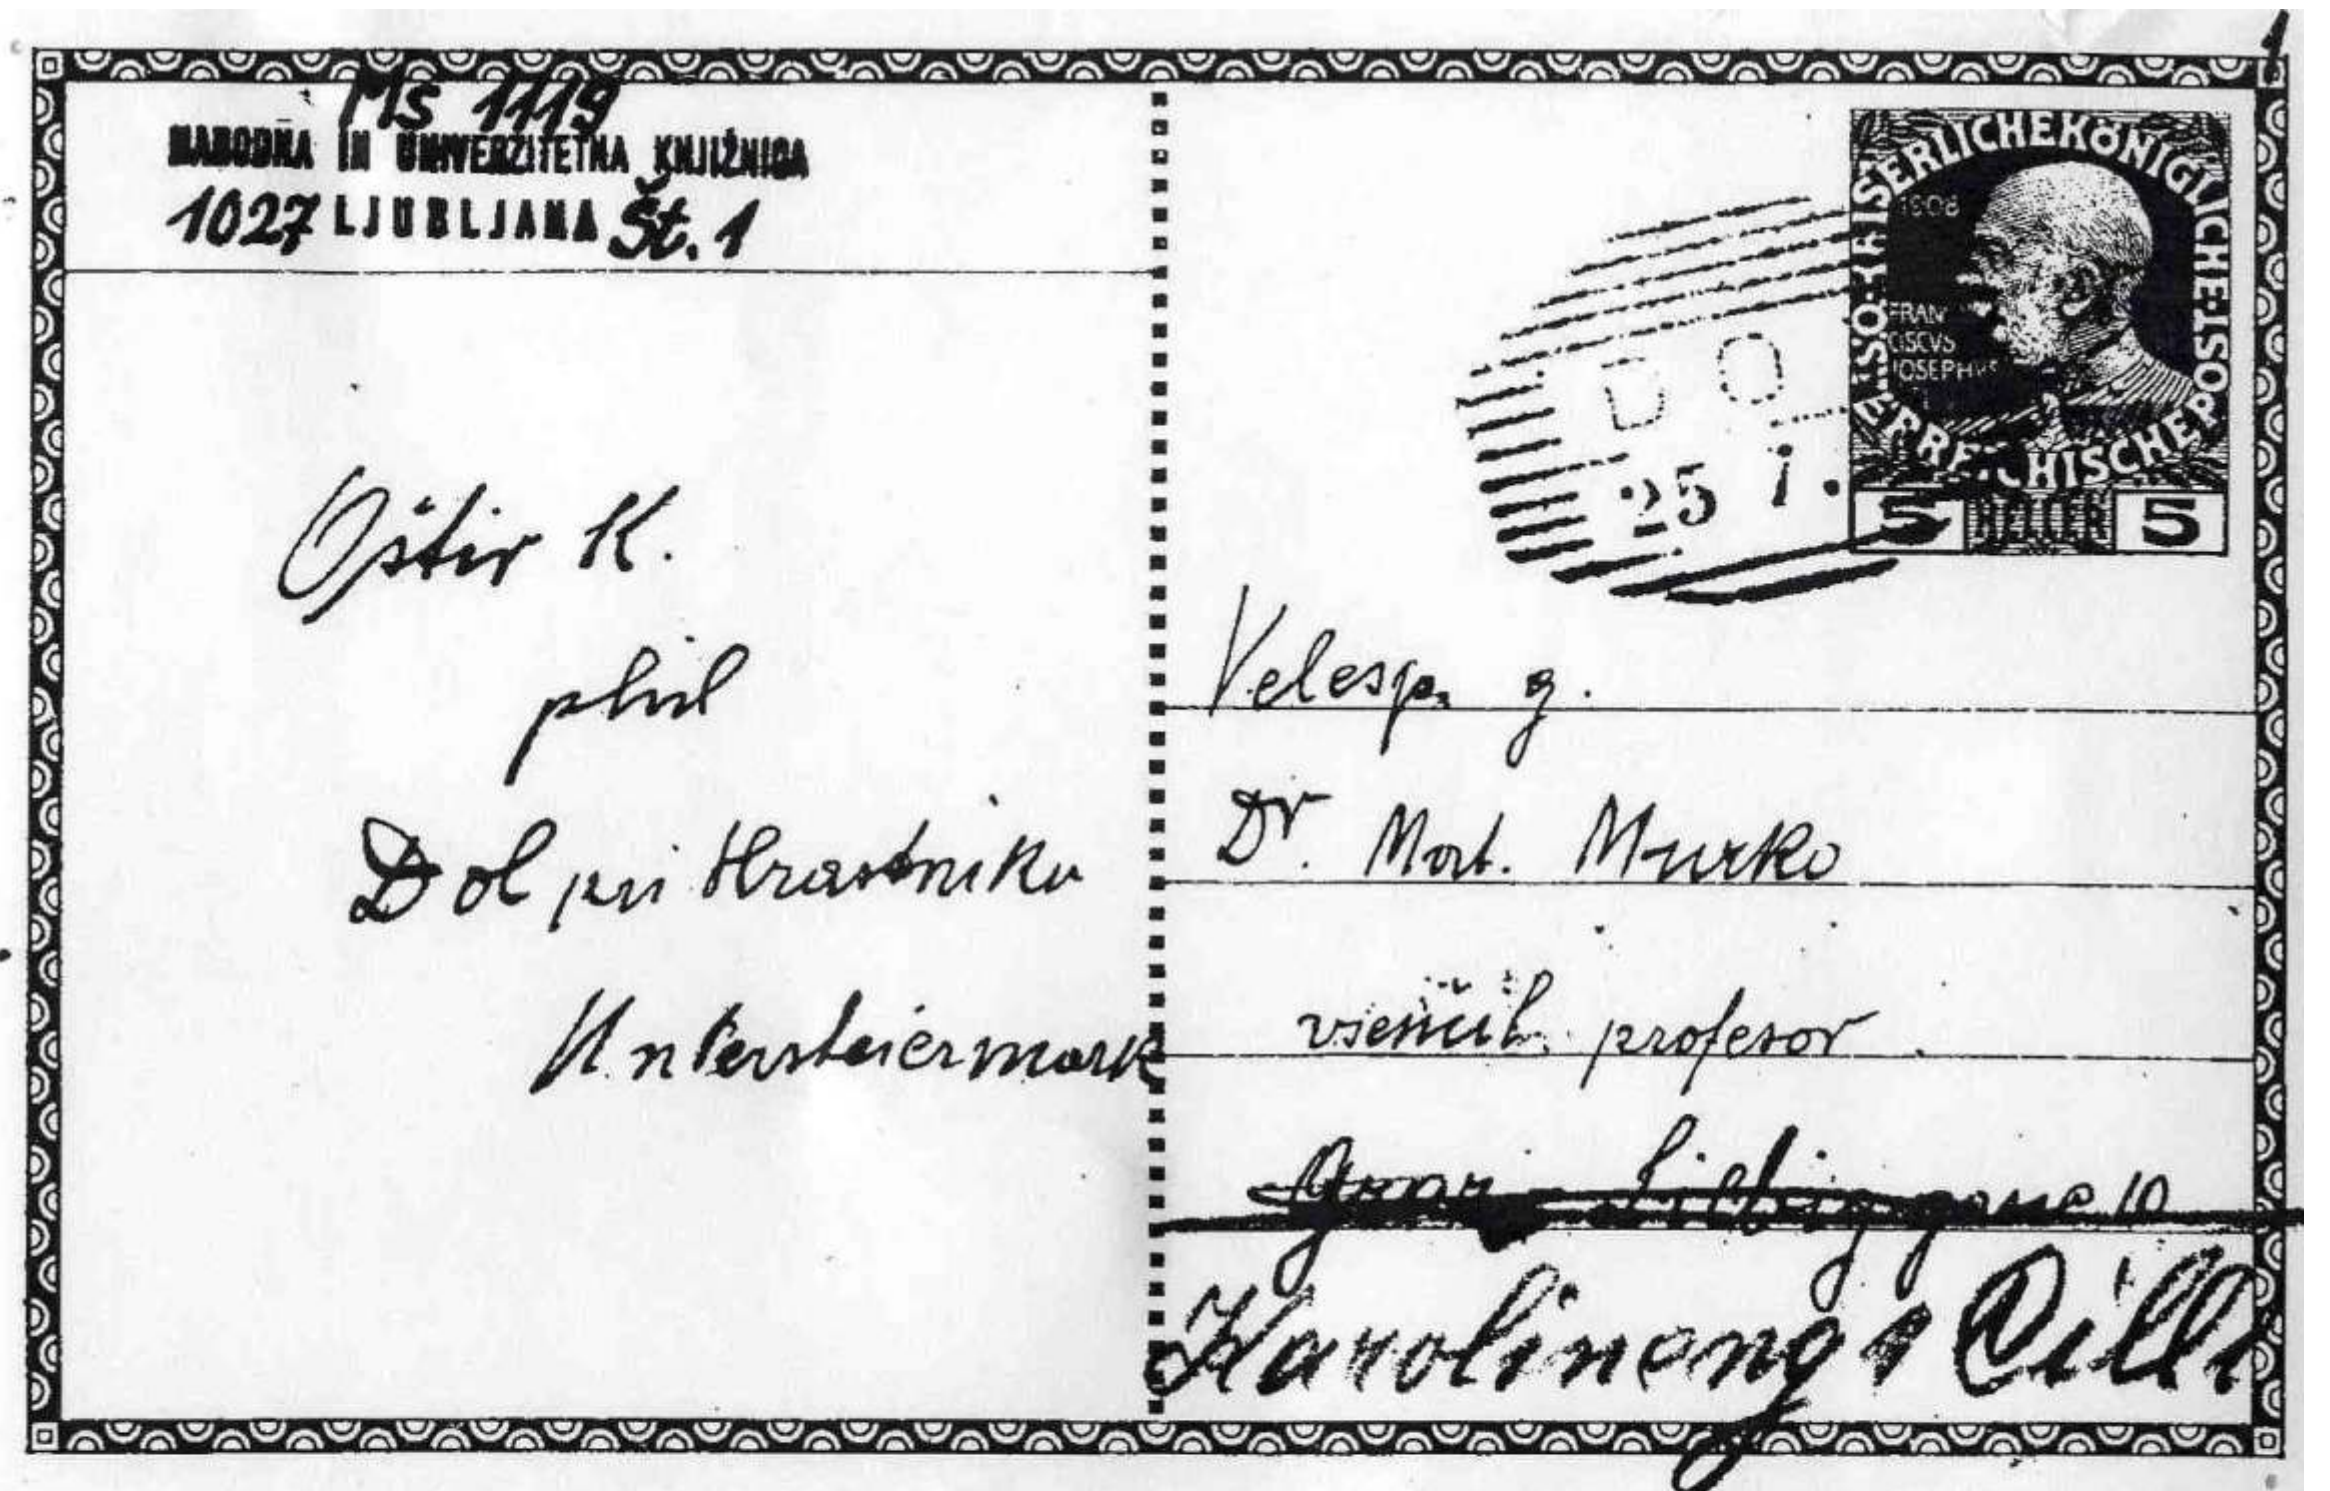 Ms 1119
NARODNA IN UNIVERZITETNA KNJIŽNICA
1027 LJUBLJANA Št. 1
Oštir K.
phil
Dol pri Hrastniku
Untersteiermark
1
KAISERLICHE KÖNIGLICHE
ÖSTERREICHISCHE POST
1908
FRAN
CISCVS
JOSEPHVS
5 HELLER 5
DO
25 I.
Velesp. g.
Dr. Mat. Murko
profesor
Graz Liebiggasse 10
Karolineng 1 Cilli